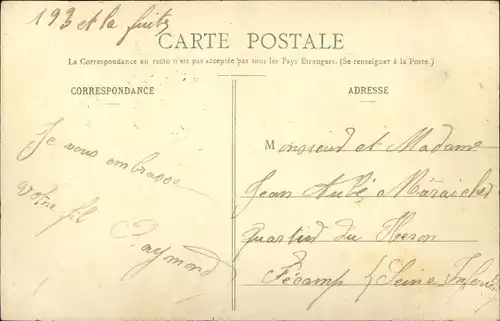 193 et la fuite
CARTE POSTALE
La Correspondance au recto n'est pas acceptée par tous les Pays Étrangers. (Se renseigner à la Poste.)
CORRESPONDANCE
Je vous embrasse
votre fil
Raymond
ADRESSE
Monsieur et Madame
Jean Aubé Maraicher
quartier du Heron
Fécamp / Seine Inferieu